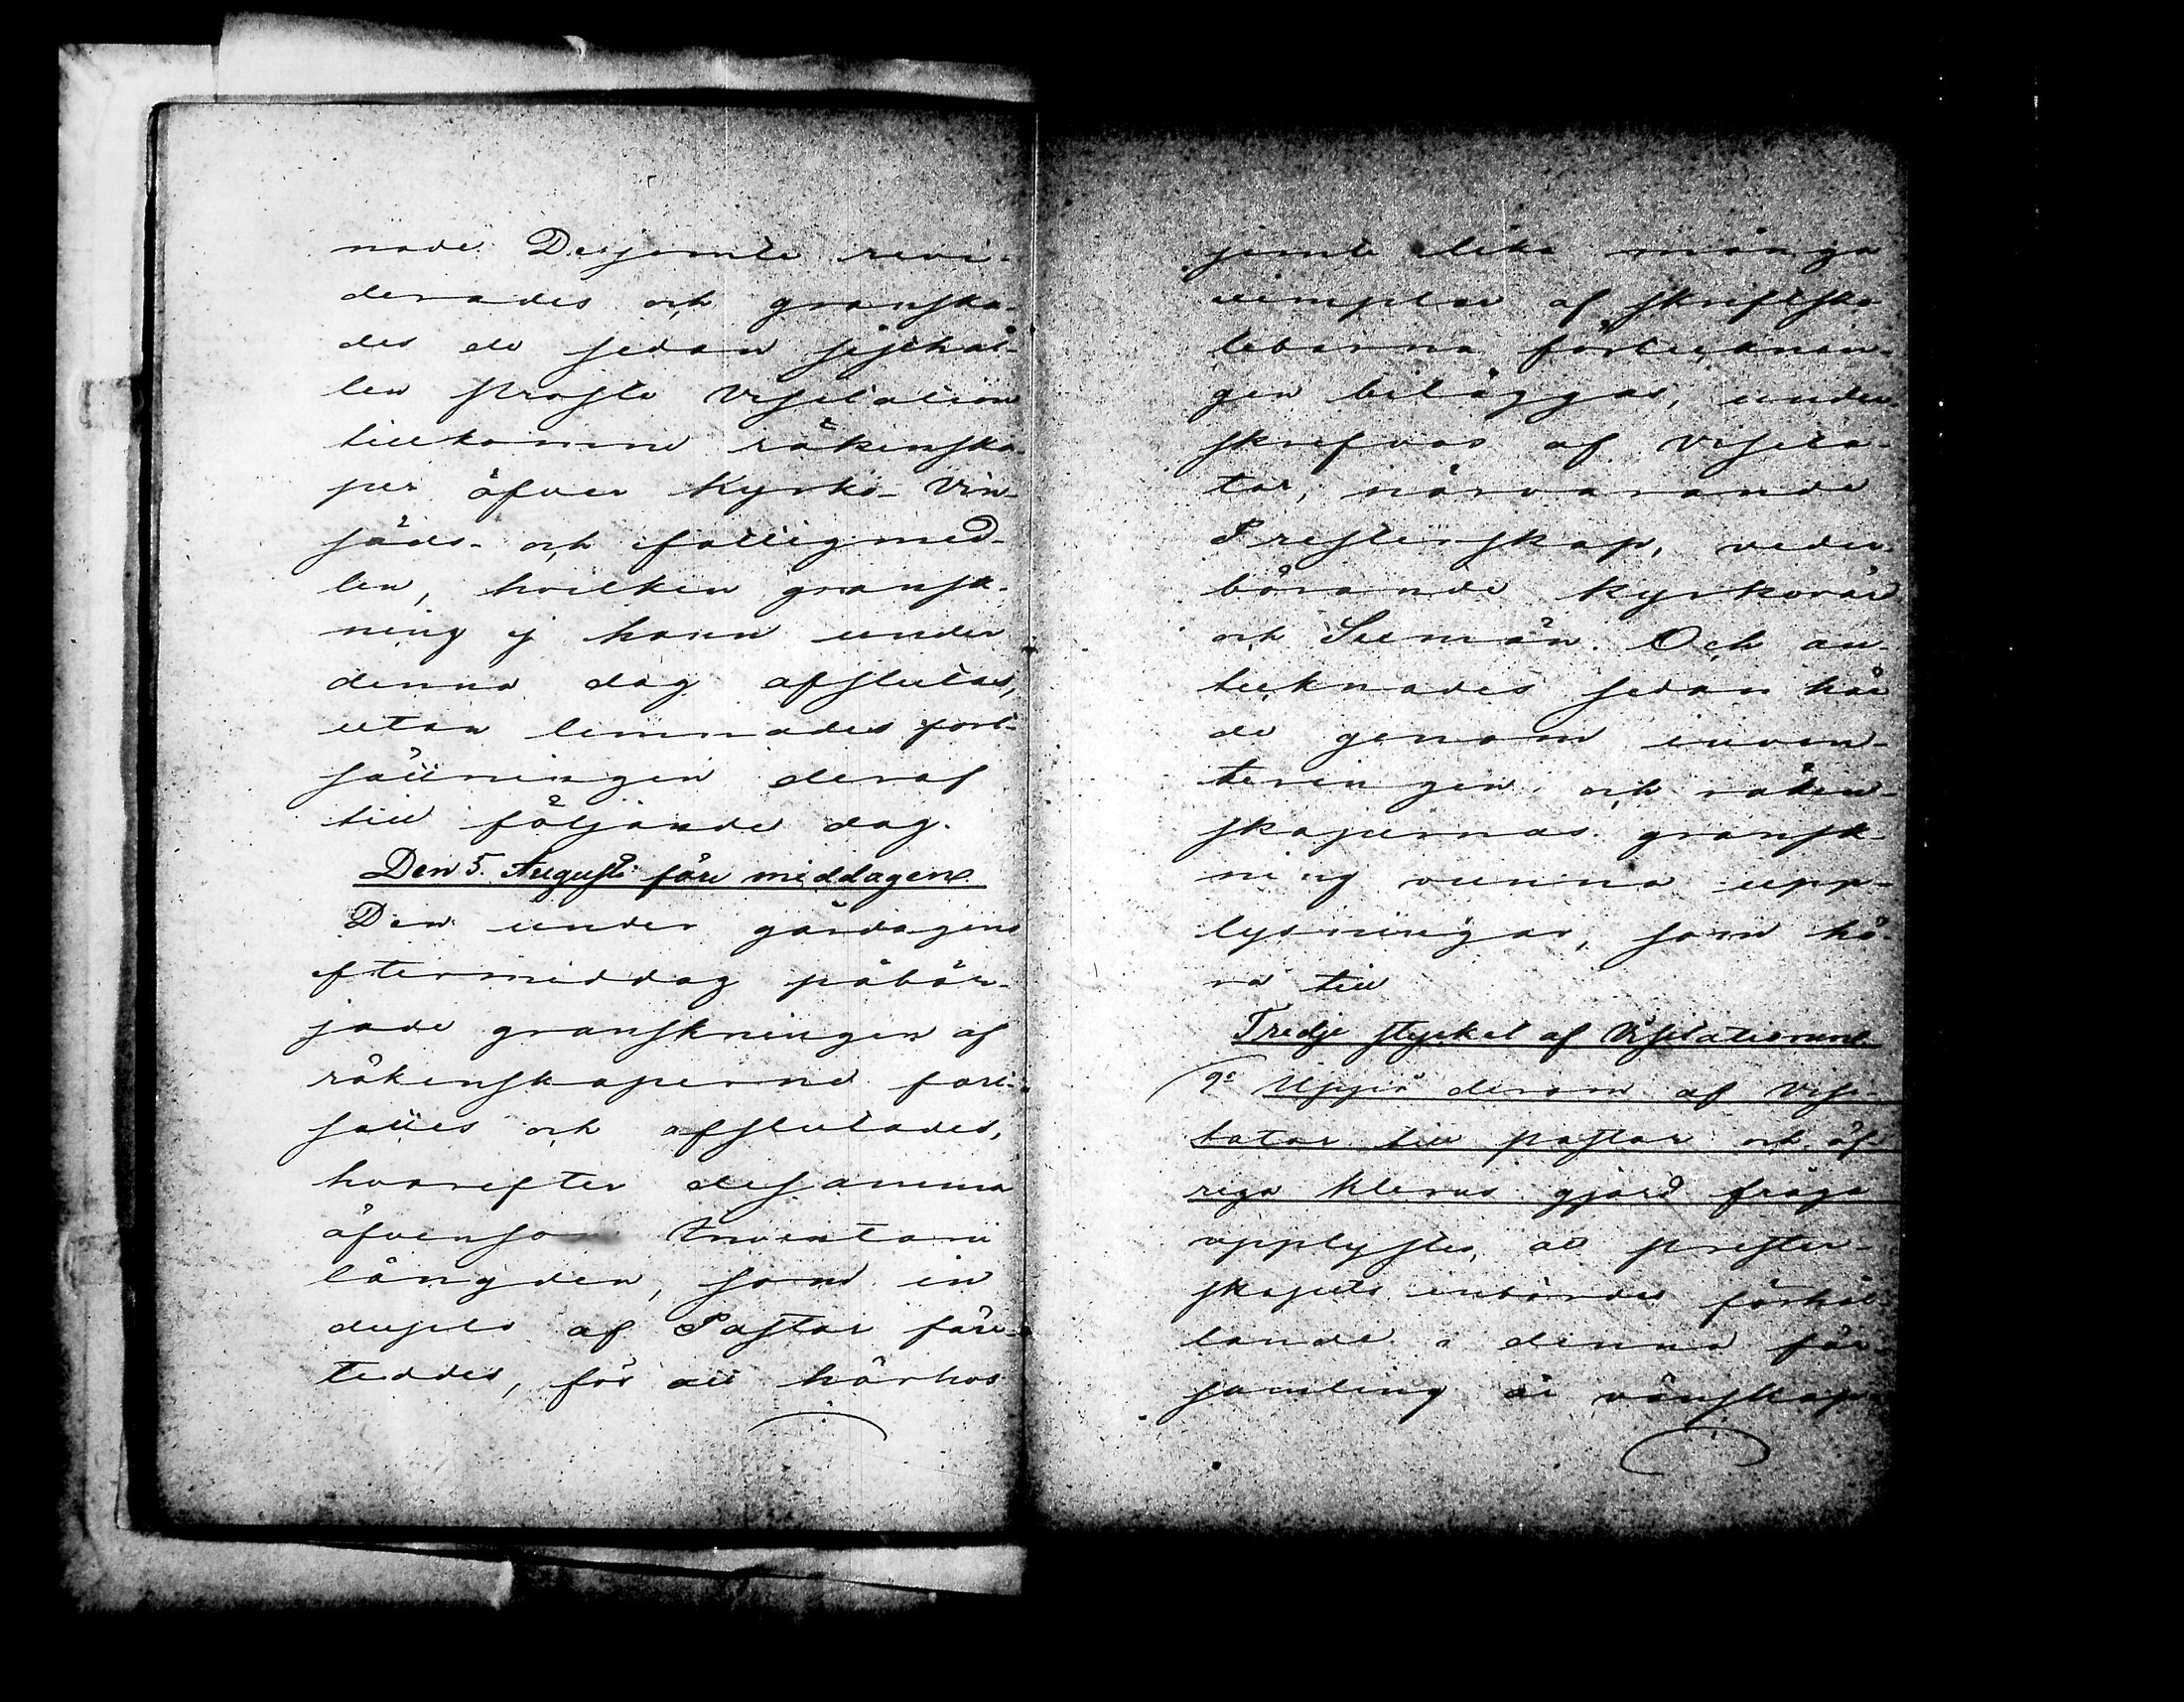 nade. Desjemte revi-
derades och granska-
des de sedan sisthål-
len Proste Visitation
tillkomne räkenska-
per öfver Kyrko- Vin-
säds- och fattigmed-
len, hvilken gransk-
ning ej hann under
denna dag afslutas,
utan lemnades fort-
sättningen deraf
till följande dag.
Den 5. Augusti före middagen.
Den under gårdagens
eftermiddag påbör-
jade granskningen af
räkenskaperne fort-
sattes och afslutades,
hvarefter desamma
äfvensom Inventarii
längden, som in
duplo af Pastor före-
teddes, för att härhos
jemte lika många
exemplar af skriftsko
lebarna förteknin-
gen biläggas, under-
skrefvos af Visita-
tor, närvarande
Presterskap, veder-
börande Kyrkovärd
och Sexmän. Och an-
teknades sedan här
de genom inven-
teringen och räken-
skapernas gransk-
ning vunna upp-
lysningar, som hö-
ra till
Tredje stycket af Visitationen.
9o Uppå derom af Visi-
tator till pastor och öf-
riga klerus gjord fråga
upplystes, att prester-
skapets inbördes förhål-
lande i denna för-
samling är vänskap-